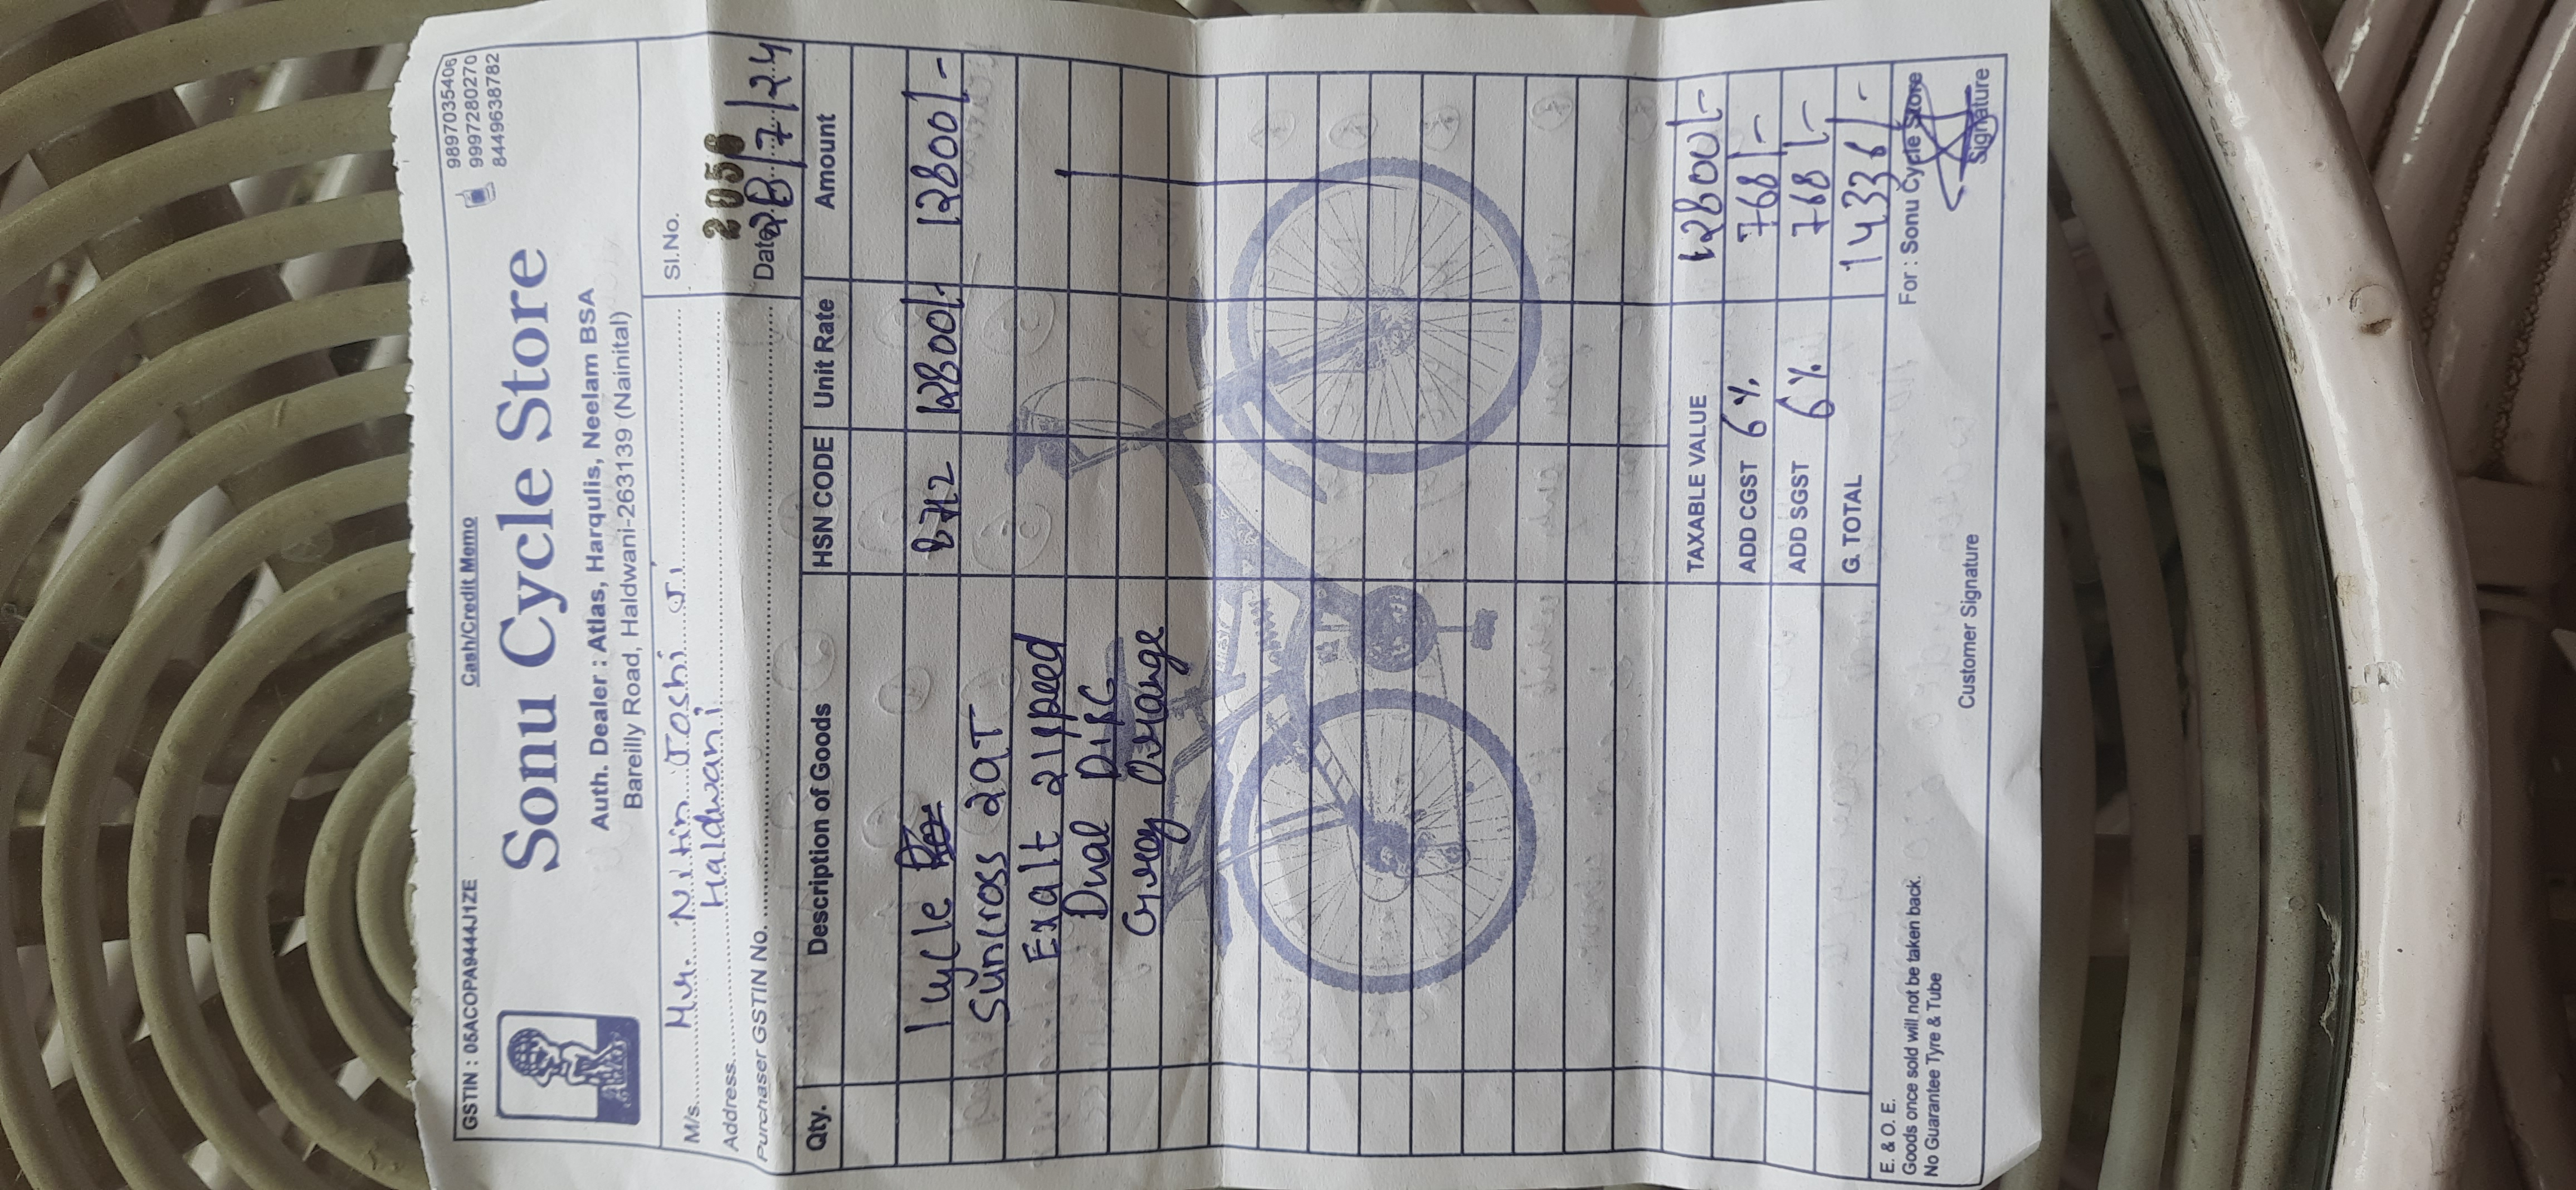 GSTIN : 05ACOPA9444J1ZE Cash/Credit Memo 9897035406
9997280270
8449638782
Sonu Cycle Store
Auth. Dealer : Atlas, Harqulis, Neelam BSA
Bareilly Road, Haldwani-263139 (Nainital)
M/s. Mr. Nitin Joshi Ji Sl.No. 2056
Address Haldwani
Purchaser GSTIN No. Date 28/7/24
Qty. Description of Goods HSN CODE Unit Rate Amount
1 cycle 8712 12800/- 12800/-
Suncross 29T
Exalt 21 speed
Dual Disc
Grey Orange
TAXABLE VALUE 12800/-
ADD CGST 6% 768/-
ADD SGST 6% 768/-
G. TOTAL 14336/-
E. & O. E.
Goods once sold will not be taken back.
No Guarantee Tyre & Tube
Customer Signature
For : Sonu Cycle Store
Signature